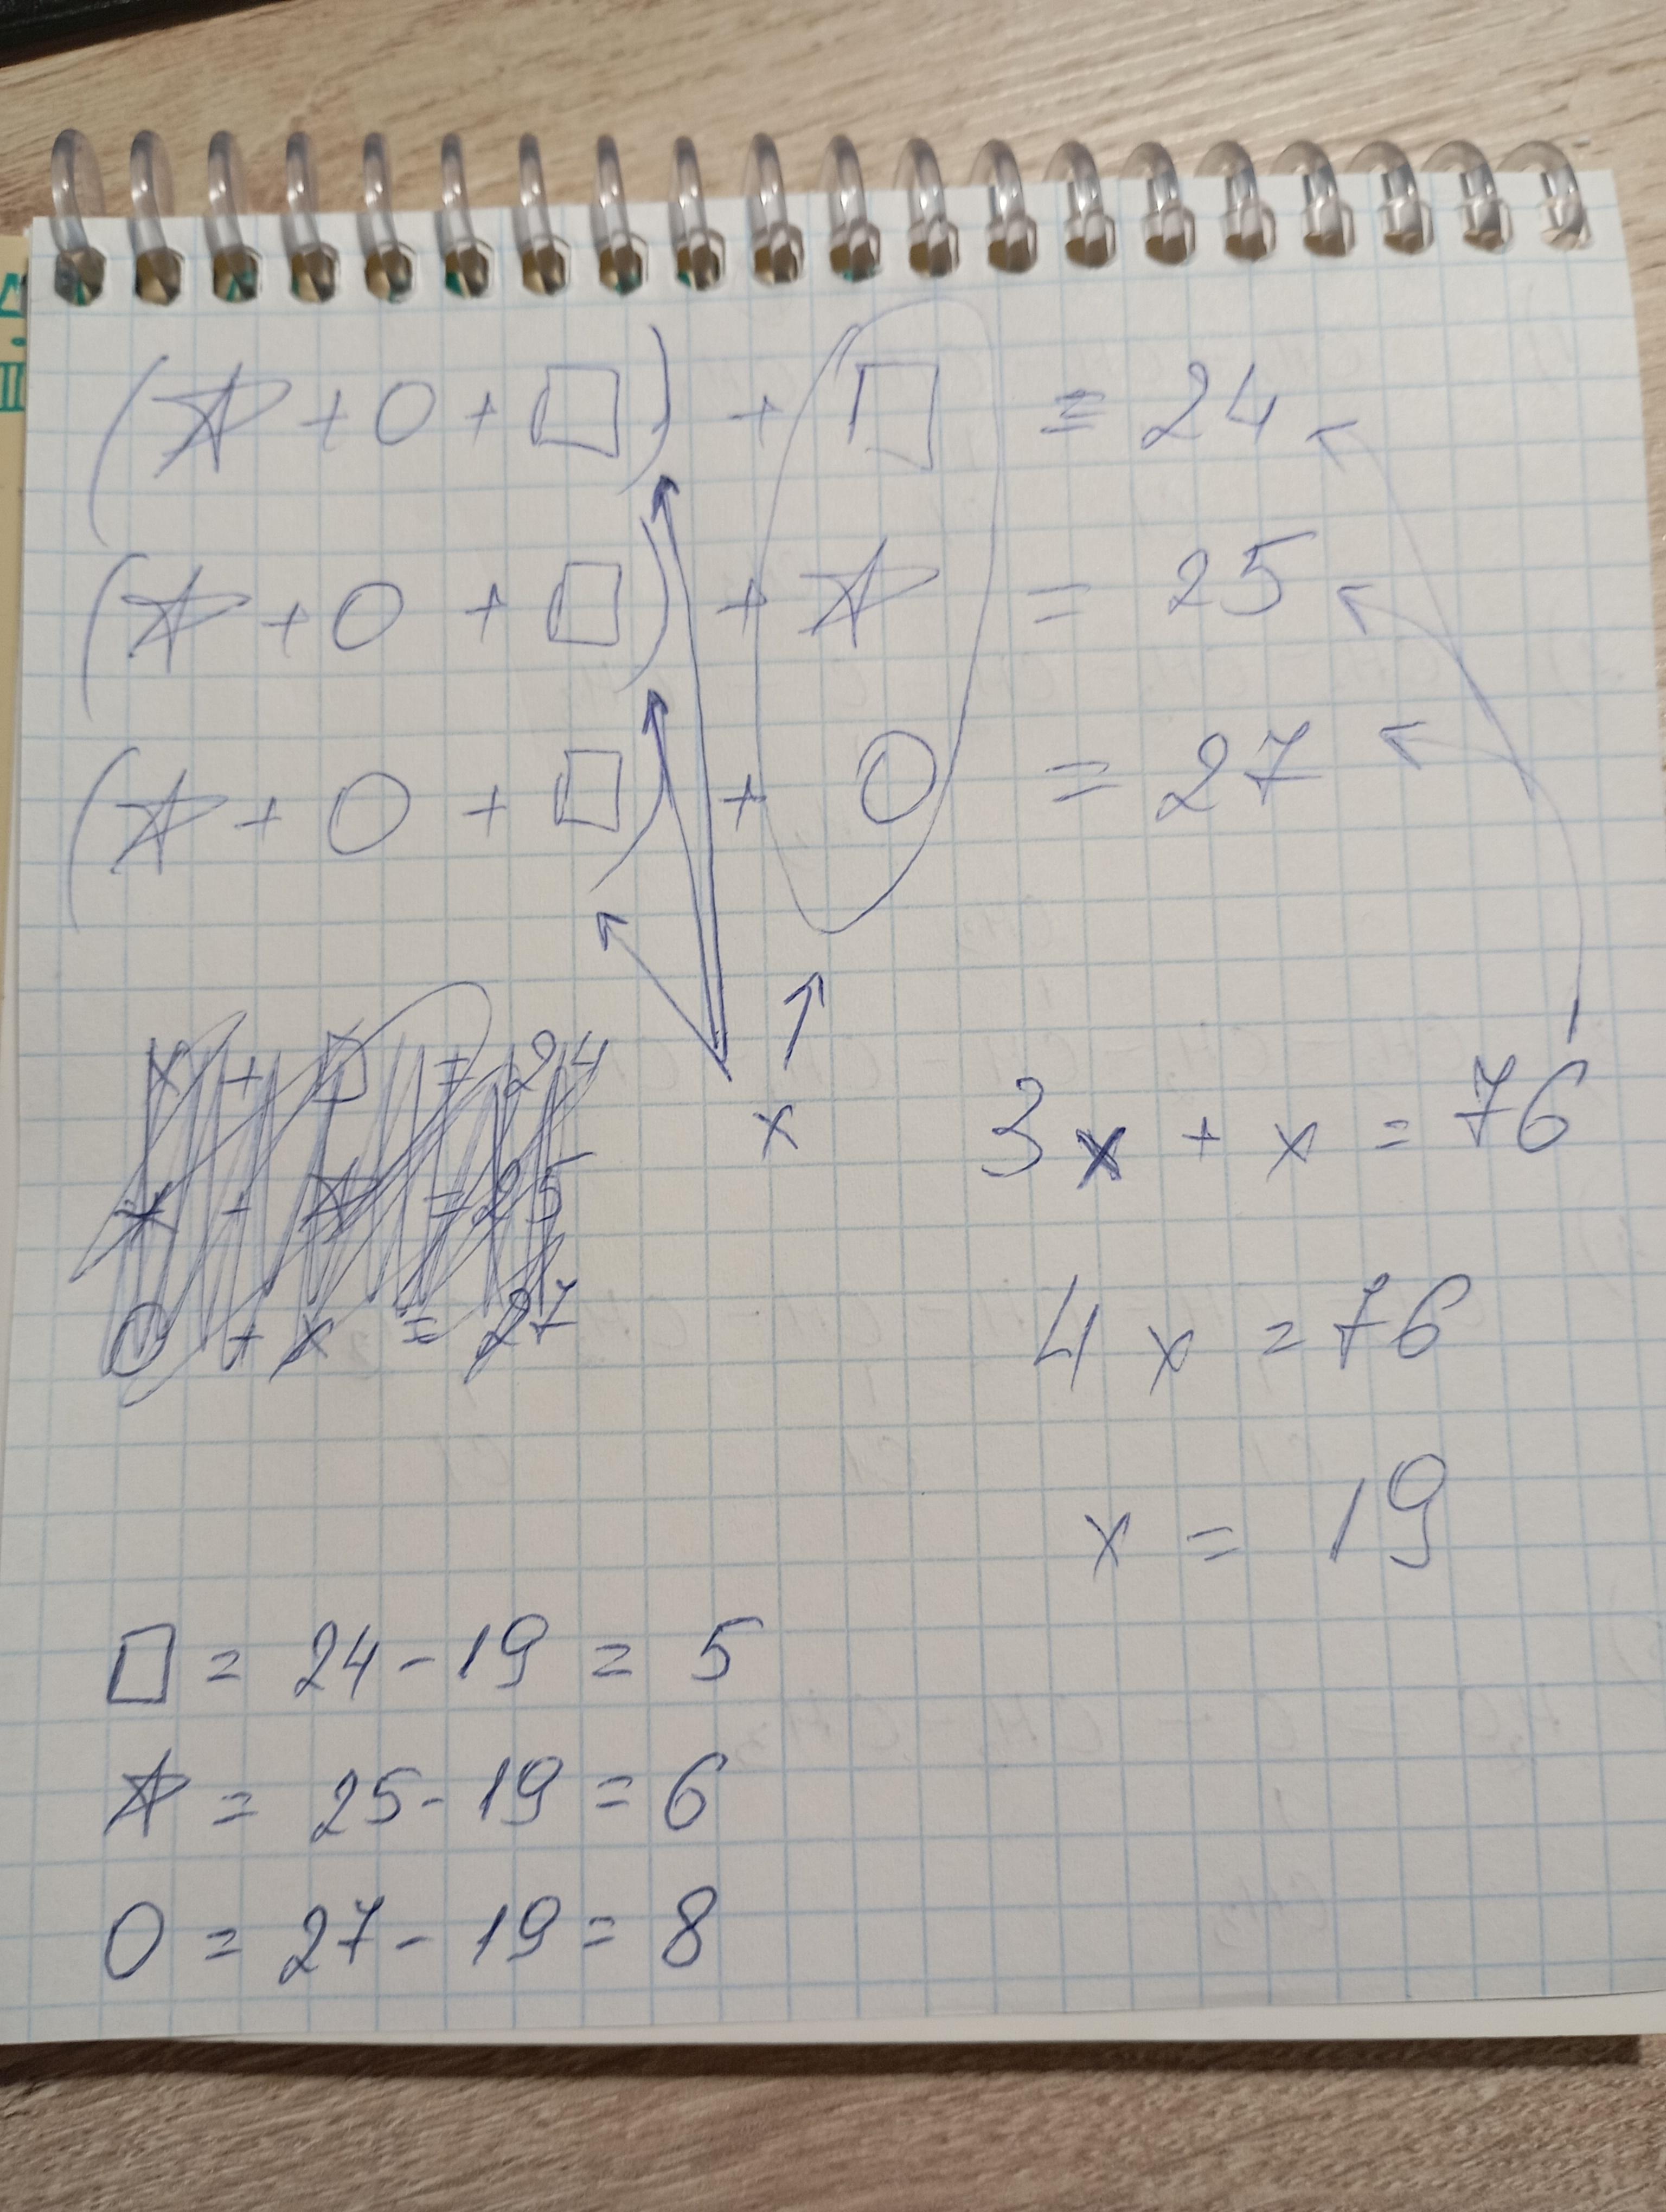 (☆ + ○ + □) + □ = 24
(☆ + ○ + □) + ☆ = 25
(☆ + ○ + □) + ○ = 27
x + □ = 24
x + ☆ = 25
○ + x = 27
x
3x + x = 76
4x = 76
x = 19
□ = 24 - 19 = 5
☆ = 25 - 19 = 6
○ = 27 - 19 = 8